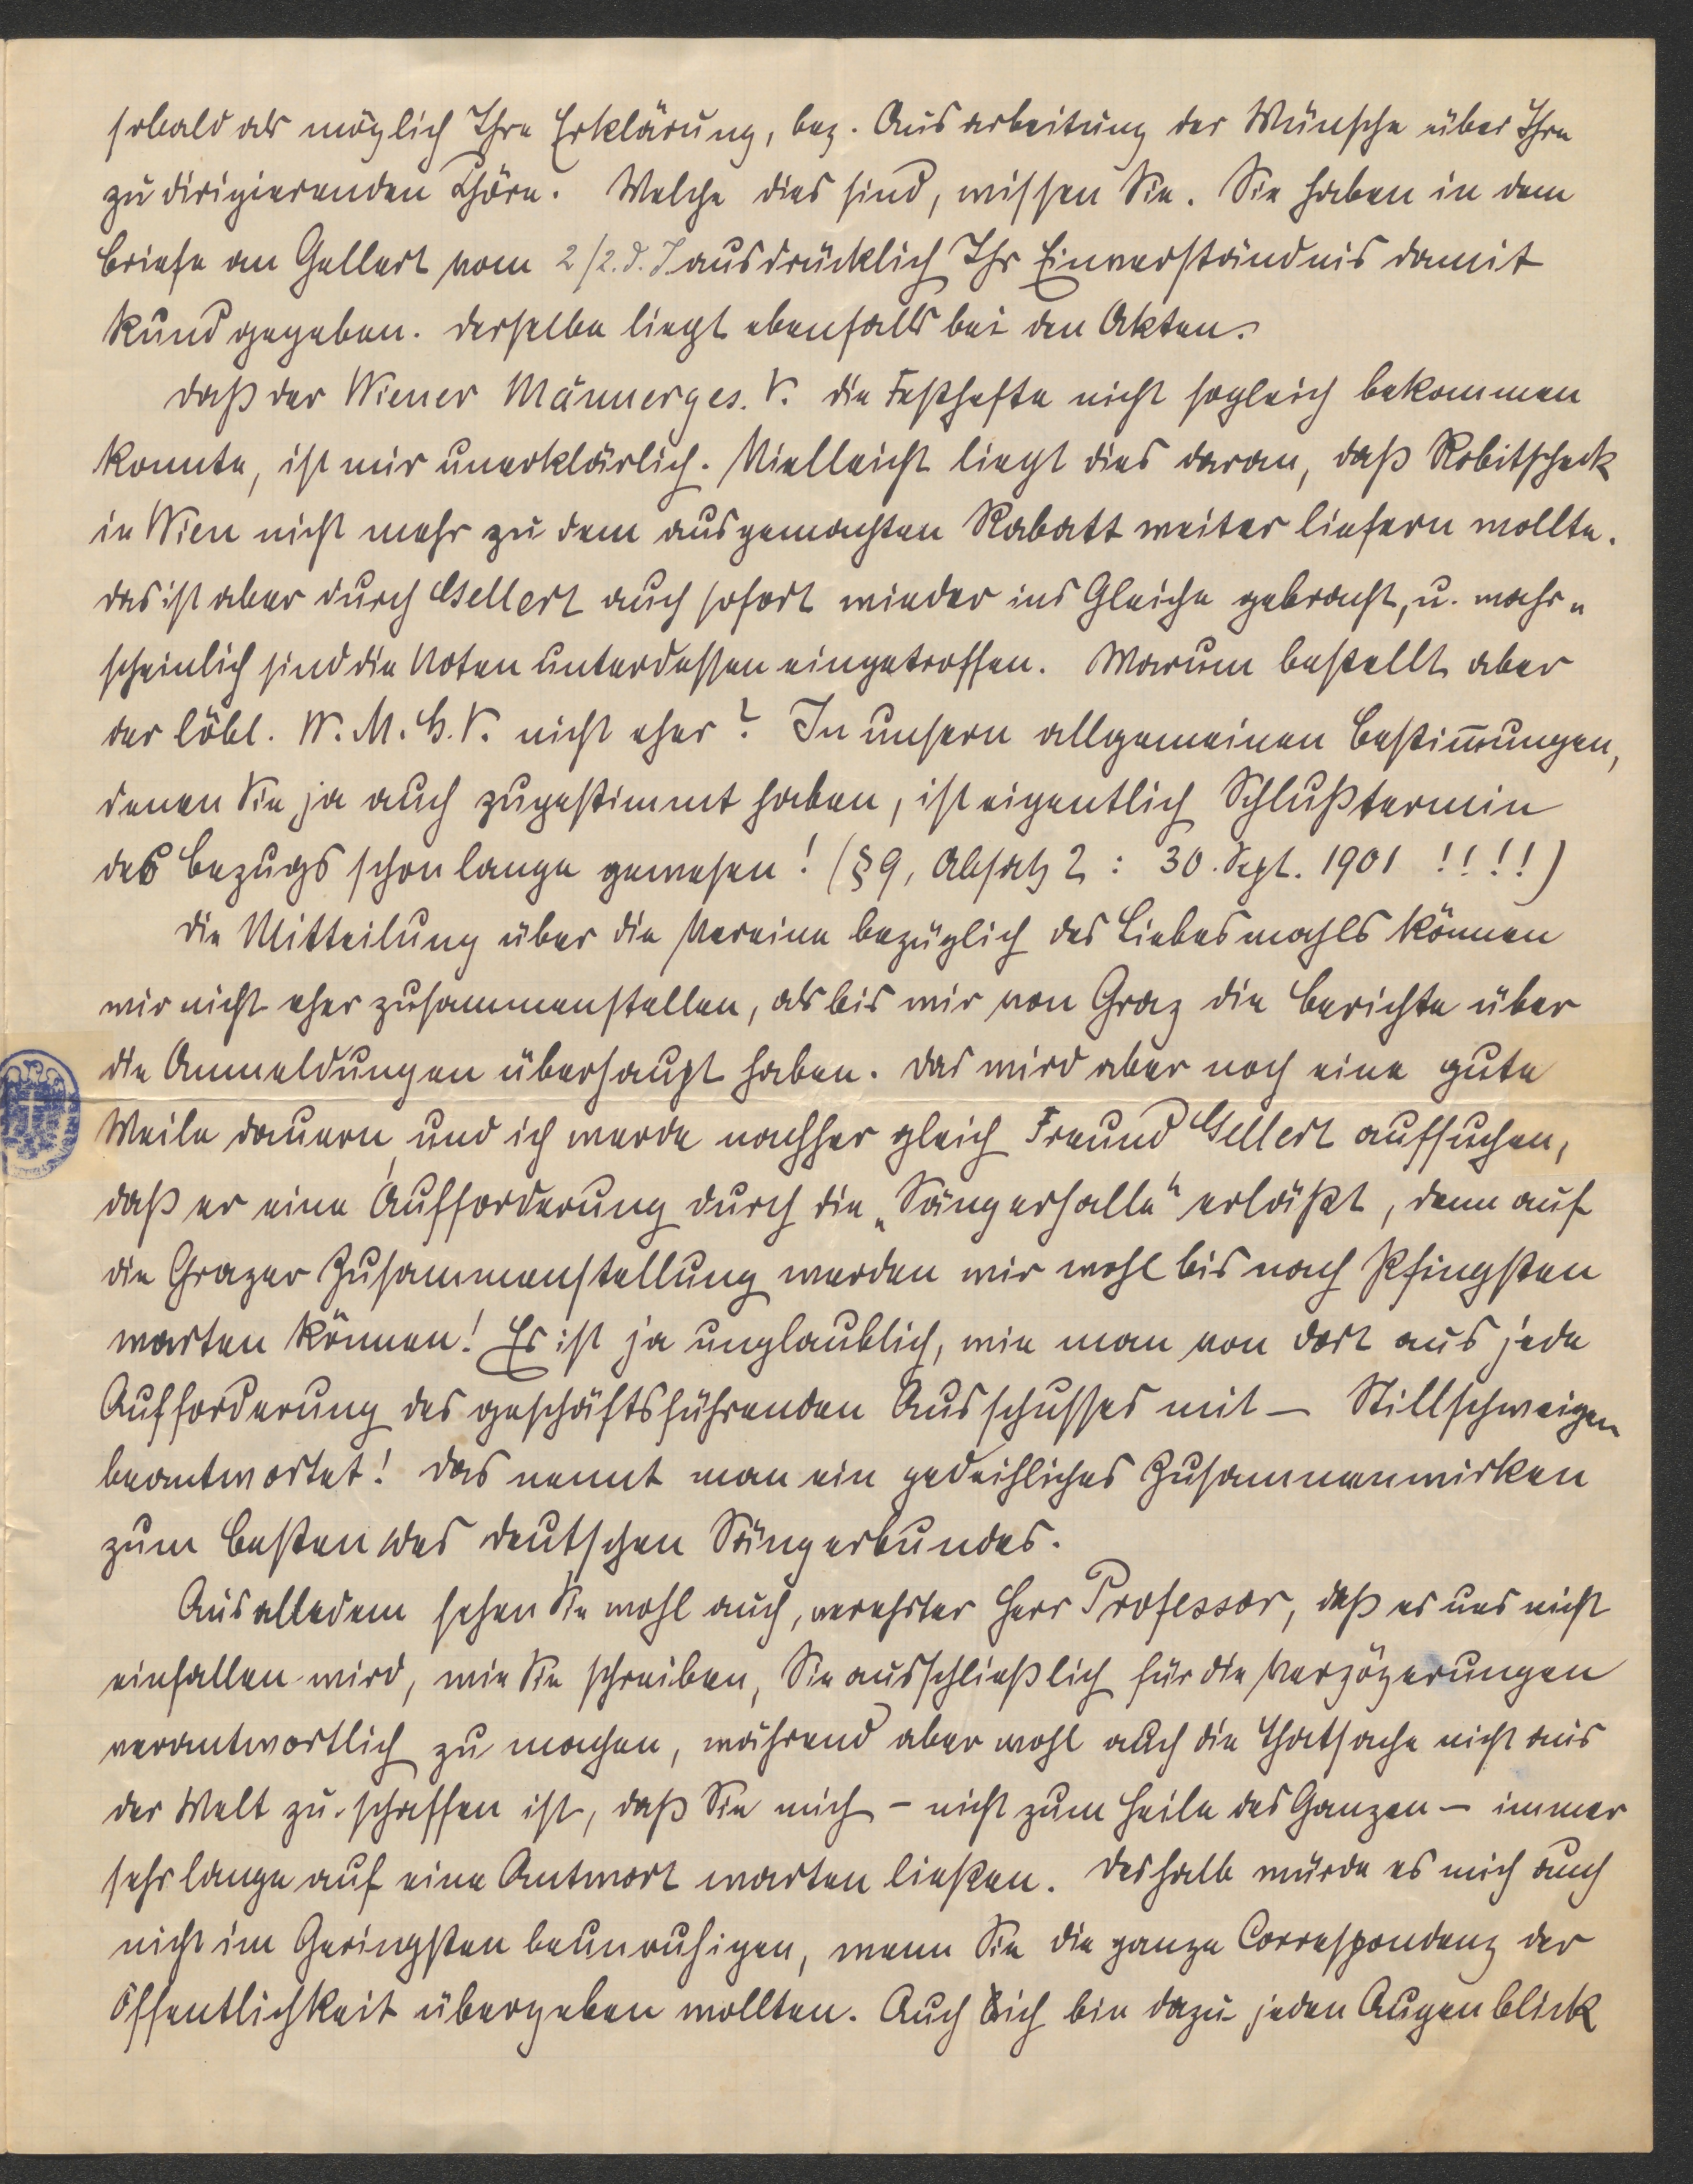 sobald als möglich Ihre Erklärung, bez. Ausarbeitung der Wünsche über Ihre
zu dirigierenden Chöre. Welche dies sind, wissen Sie. Sie haben in dem
Briefe an Gellert vom 2/2. d. J. ausdrücklich Ihr Einverständnis damit
kund gegeben. Derselbe liegt ebenfalls bei den Akten.
Daß der Wiener Männerges. V. die Festhefte nicht sogleich bekommen
konnte, ist mir unerklärlich. Vielleicht liegt dies daran, daß Robitscheck
in Wien nicht mehr zu dem ausgemachten Rabatt weiter liefern wollte.
Das ist aber durch Gellert auch sofort wieder ins Gleiche gebracht, u. wahr„
scheinlich sind die Noten unterdessen eingetroffen. Warum bestellt aber
der löbl. W. M. G. V. nicht eher? In unsern allgemeinen Bestim̅ungen,
denen Sie ja auch zugestimmt haben, ist eigentlich Schlußtermin
des Bezugs schon lange gewesen! (§ 9, Absatz 2 : 30. Sept. 1901 !!!!)
Die Mitteilung über die Vereine bezüglich des Liebesmahls können
wir nicht eher zusammenstellen, als bis wir von Graz die Berichte über
die Anmeldungen überhaupt haben. Das wird aber noch eine gute
Weile dauern, und ich werde nachher gleich Freund Gellert aufsuchen,
daß er eine Aufforderung durch die „Sängerhalle“ erläßt, denn auf
die Grazer Zusammenstellung werden wir wohl bis nach Pfingsten
warten können! Es ist ja unglaublich, wie man von dort aus jede
Aufforderung des geschäftsführenden Ausschusses mit – Stillschweigen
beantwortet! Das nennt man ein gedeihliches Zusammenwirken
zum Besten des deutschen Sängerbundes.
Aus alledem sehen Sie wohl auch, verehrter Herr Professor, daß es uns nicht
einfallen wird, wie Sie schreiben, Sie ausschließlich für die Verzögerungen
verantwortlich zu machen, während aber wohl auch die Thatsache nicht aus
der Welt zu schaffen ist, daß Sie mich – nicht zum Heile des Ganzen – immer
sehr lange auf eine Antwort warten ließen. Deshalb würde es mich auch
nicht im Geringsten beunruhigen, wenn Sie die ganze Correspondenz der
Öffentlichkeit übergeben wollten. Auch ich bin dazu jeden Augenblick